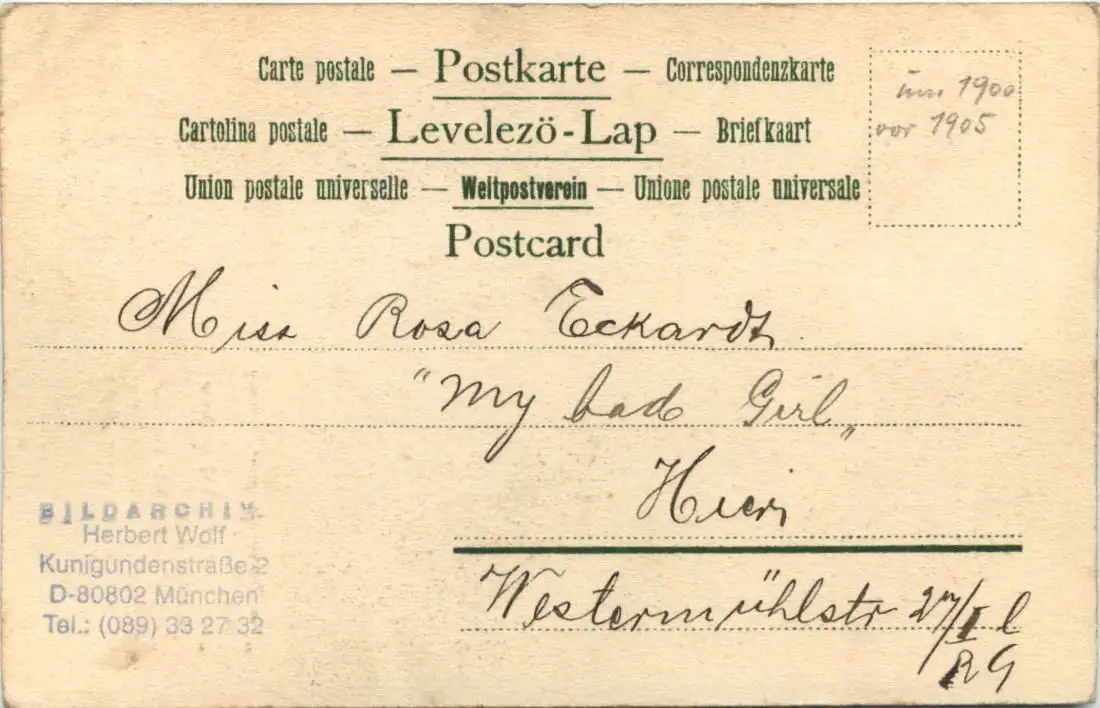 Carte postale — Postkarte — Correspondenzkarte
Cartolina postale — Levelezö-Lap — Briefkaart
Union postale universelle — Weltpostverein — Unione postale universale
Postcard
um 1900
vor 1905
Miss Rosa Eckardt
"My bad Girl„
Hier
Westermühlstr 27/I l
RG
BILDARCHIV
Herbert Wolf
Kunigundenstraße 2
D-80802 München
Tel.: (089) 33 27 32